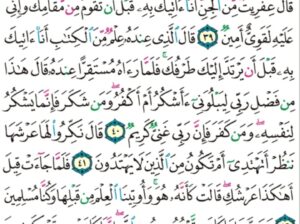 قَالَ عِفْرِيتٌ مِّنَ ٱلْجِنِّ أَنَا۠ ءَاتِيكَ بِهِۦ قَبْلَ أَن تَقُومَ مِن مَّقَامِكَ وَإِنِّى
عَلَيْهِ لَقَوِىٌّ أَمِينٌ ٣٩ قَالَ ٱلَّذِى عِندَهُۥ عِلْمٌ مِّنَ ٱلْكِتَٰبِ أَنَا۠ ءَاتِيكَ
بِهِۦ قَبْلَ أَن يَرْتَدَّ إِلَيْكَ طَرْفُكَ فَلَمَّا رَءَاهُ مُسْتَقِرًّا عِندَهُۥ قَالَ هَٰذَا
مِن فَضْلِ رَبِّى لِيَبْلُوَنِىٓ ءَأَشْكُرُ أَمْ أَكْفُرُ وَمَن شَكَرَ فَإِنَّمَا يَشْكُرُ
لِنَفْسِهِۦ وَمَن كَفَرَ فَإِنَّ رَبِّى غَنِىٌّ كَرِيمٌ ٤٠ قَالَ نَكِّرُوا۟ لَهَا عَرْشَهَا
نَنظُرْ أَتَهْتَدِىٓ أَمْ تَكُونُ مِنَ ٱلَّذِينَ لَا يَهْتَدُونَ ٤١ فَلَمَّا جَآءَتْ قِيلَ
أَهَٰكَذَا عَرْشُكِ قَالَتْ كَأَنَّهُۥ هُوَ وَأُوتِينَا ٱلْعِلْمَ مِن قَبْلِهَا وَكُنَّا مُسْلِمِينَ